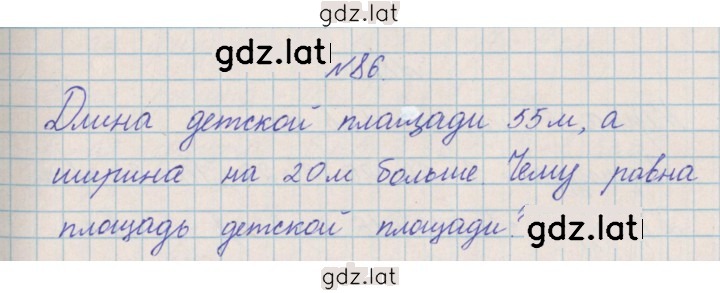 gdz.lat
gdz.lat
№86.
Длина детской площади 55м, а
ширина на 20м больше Чему равна
площадь детской площади?
gdz.lat
gdz.lat